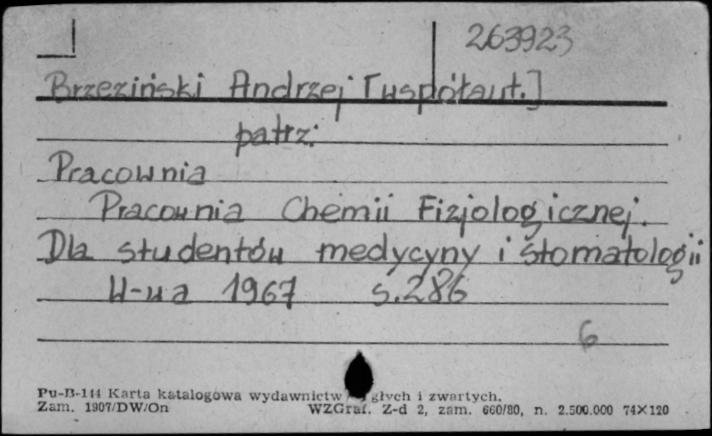 263923
Brzeziński Andrzej [współaut.]
patrz:
Pracownia
Pracownia Chemii Fizjologicznej.
Dla studentów medycyny i stomatologii
W-wa 1967 s.286
6
Pu-B-144 Karta katalogowa wydawnictw głych i zwartych.
Zam. 1907/DW/On WZGraf. Z-d 2, zam. 660/80, n. 2.500.000 74×120